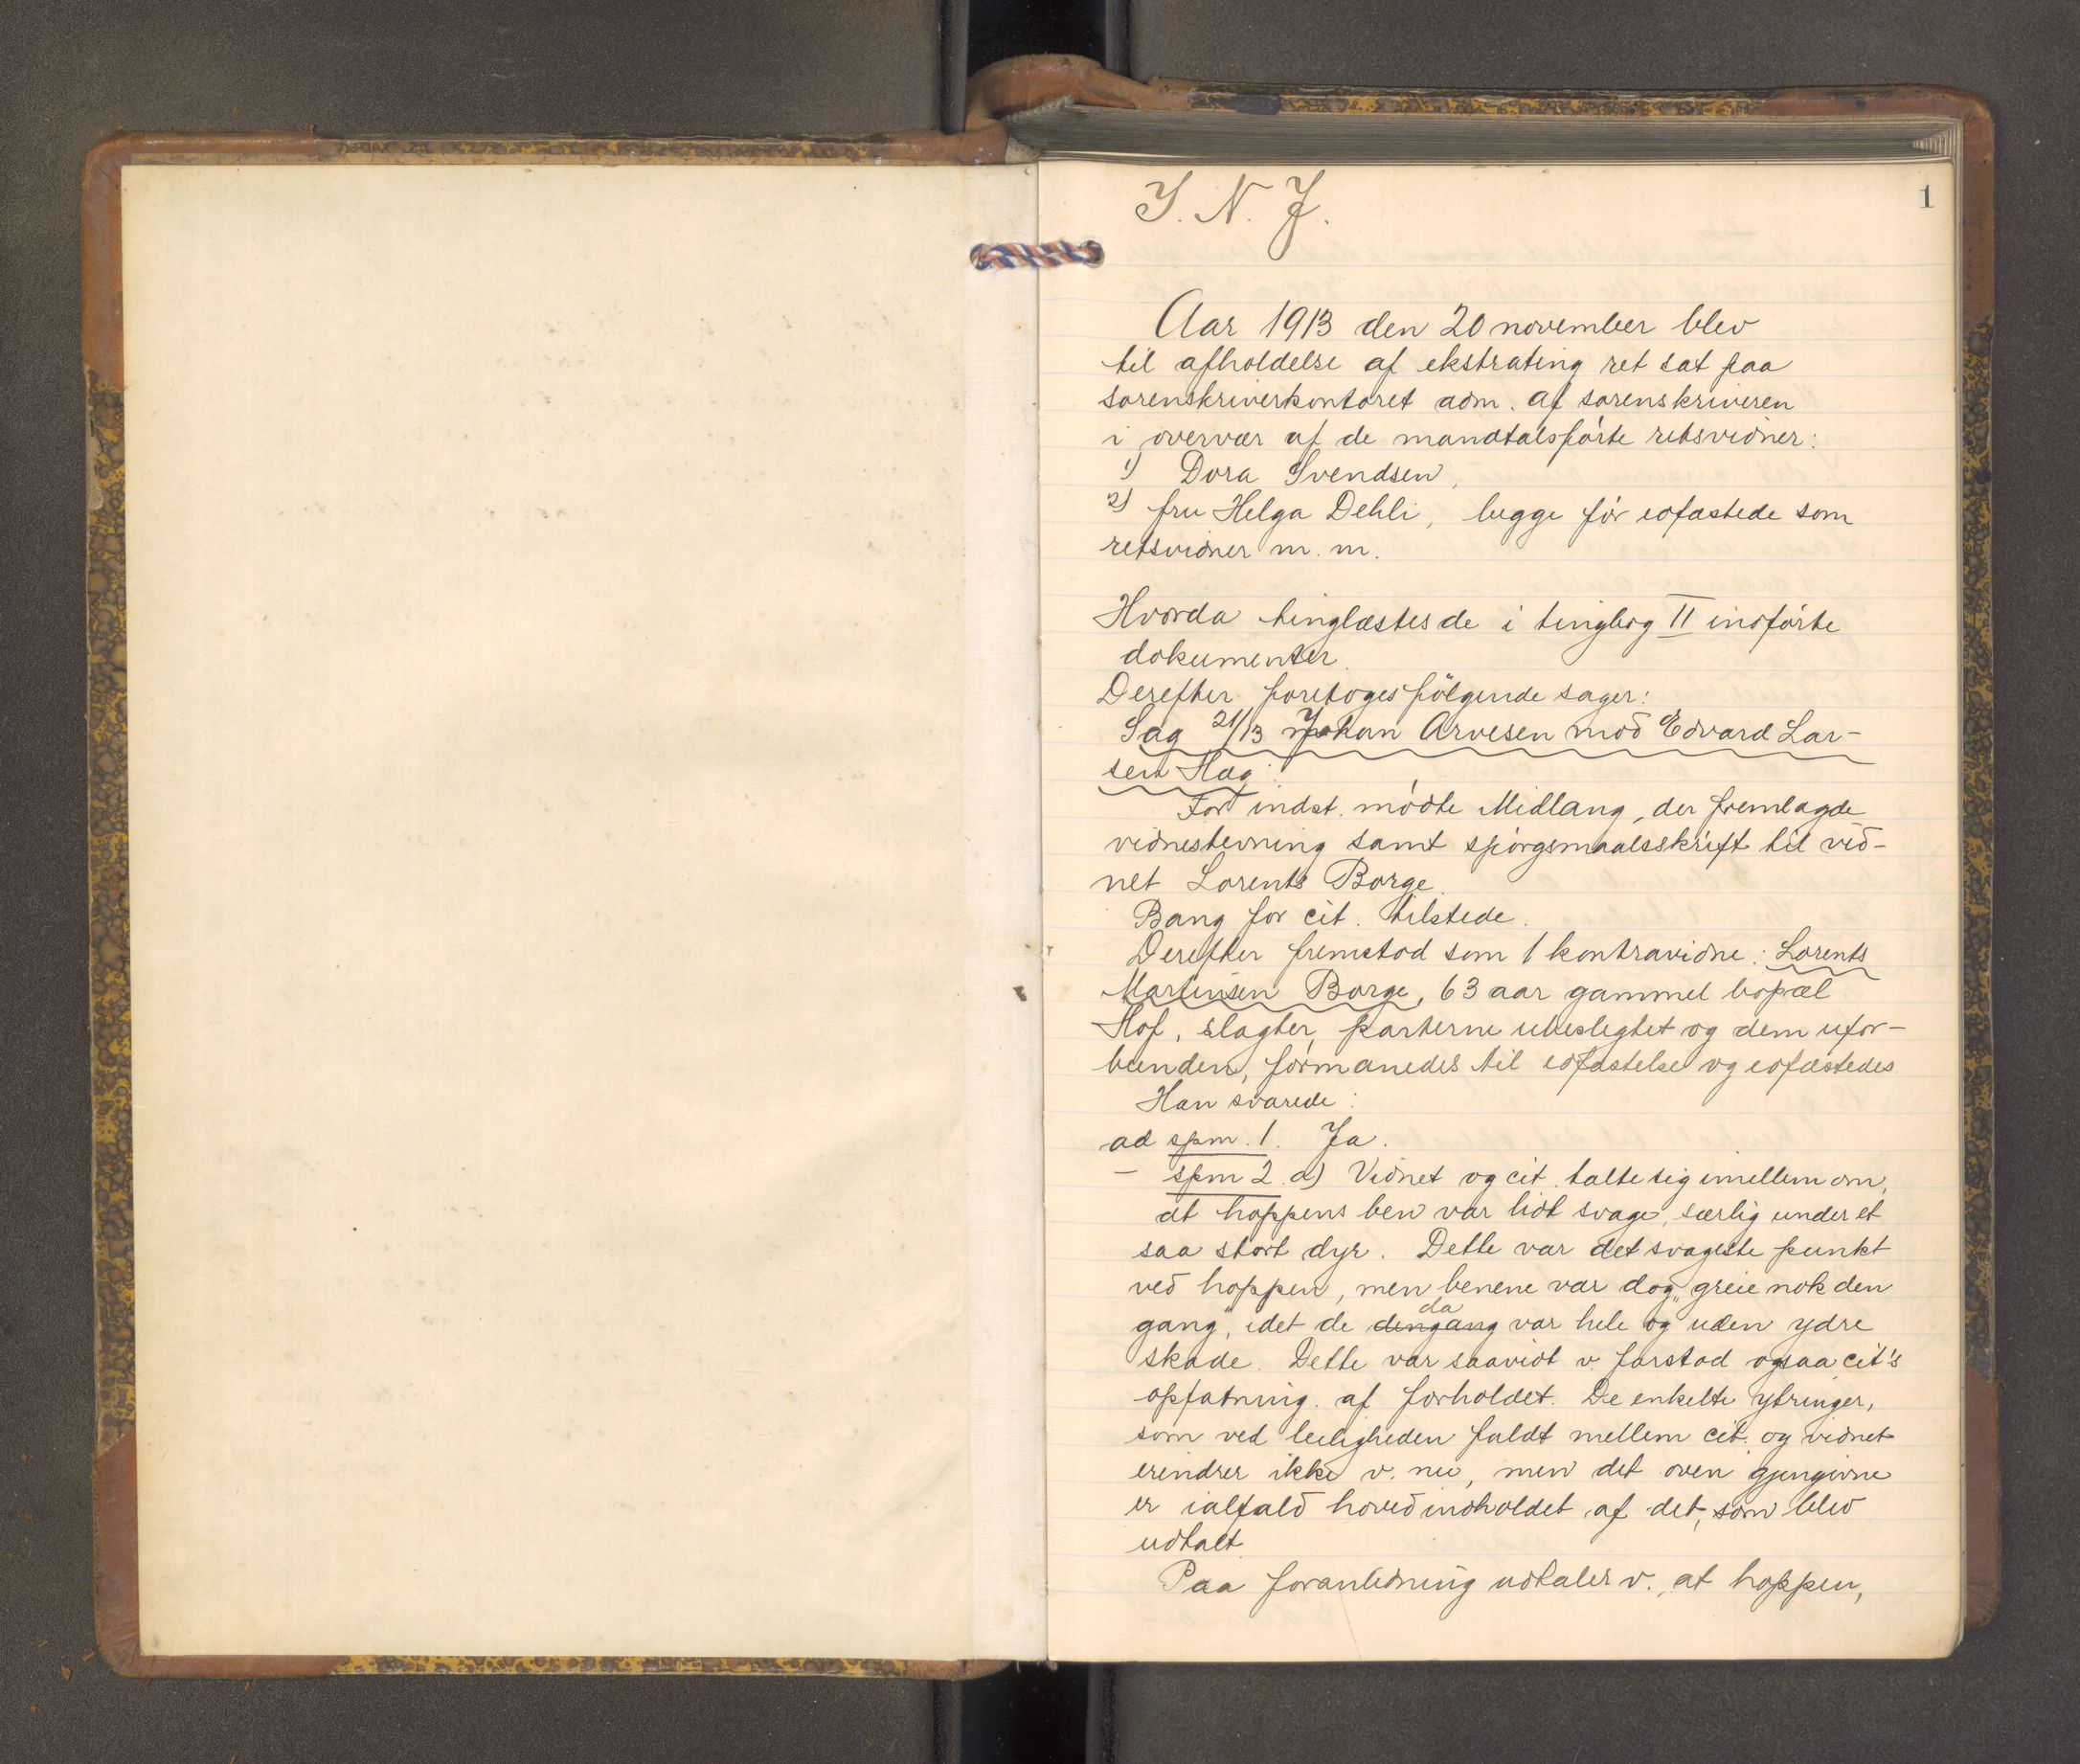 1
I. N. J.
Aar 1913 den 20 november blev
til afholdelse af ekstrating ret sat paa
sorenskriverkontoret adm. af sorenskriveren
i overvær af de mandtalsførte retsvidner:
1) Dora Svendsen,
2) fru Helga Dehli, begge før edfæstede som
retsvidner m. m.
Hvorda tinglæstes de i tingbog II indførte
dokumenter.
Derefter foretoges følgende sager:
Sag 21/13 Johan Arvesen mod Edvard Lar-
sen Hæg:
For indst. mødte Midlang, der fremlagde
vidnestevning samt spørgsmaalsskrift til vid-
net Lorents Borge.
Bang for cit. tilstede.
Derefter fremstod som 1 kontravidne: Lorents
Martinsen Borge, 63 aar gammel bopæl
Hof, slagter, parterne ubeslegtet og dem ufor-
bunden, formanedes til edfæstelse og edfæstedes
Han svarede:
ad spm. 1. Ja.
— spm 2. a) Vidnet og cit. talte sig imellem om,
at hoppens ben var lidt svage, særlig under et
saa stort dyr. Dette var det svageste punkt
ved hoppen, men benene var dog „greie nok den
gang", idet de dengang da var hele og uden ydre
skade. Dette var saavidt v. forstod ogsaa cit's
opfatning af forholdet. De enkelte ytringer,
som ved leiligheden faldt mellem cit. og vidnet
erindrer ikke v. nu, men det oven gjengivne
er ialfald hovedindholdet af det, som blev
udtalt.
Paa foranledning udtaler v., at hoppen,